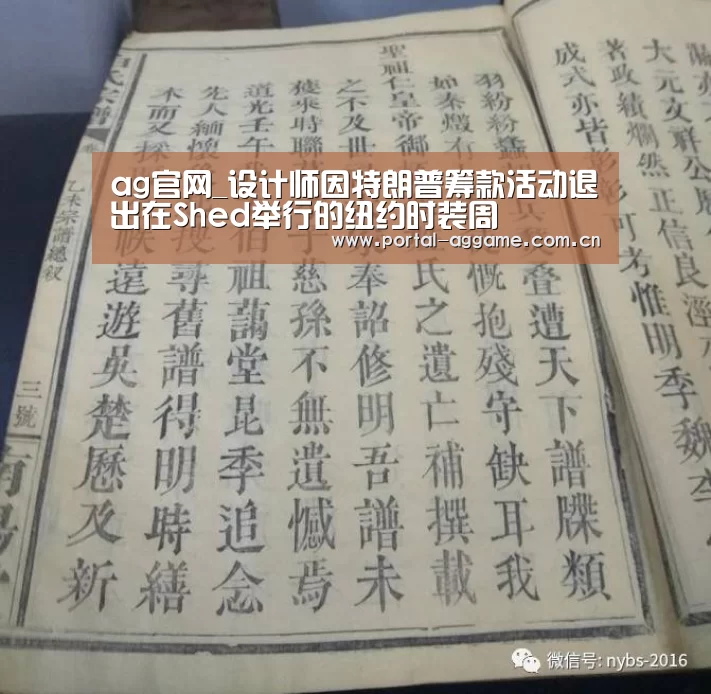 大元文祥公歷
著政績爛然正信良涇
成式亦皆彰彰可考惟明季魏李
羽紛粉 疊遭天下譜牒類
如秦燬有 慨抱殘守缺耳我
聖祖仁皇帝御 氏之遺亡補撰載
之不及世 奉詔修明吾譜未
獲乘時聯 慈孫不無遺憾焉
道光壬午 祖藹堂昆季追念
先人緬懷 搜尋舊譜得明時繕
木而又採 遠遊吳楚歷及新
氏宗譜
乙未宗譜總叙
三號
南陽
ag官网_设计师因特朗普筹款活动退
出在Shed举行的纽约时装周
www.portal-aggame.com.cn
微信号: nybs-2016